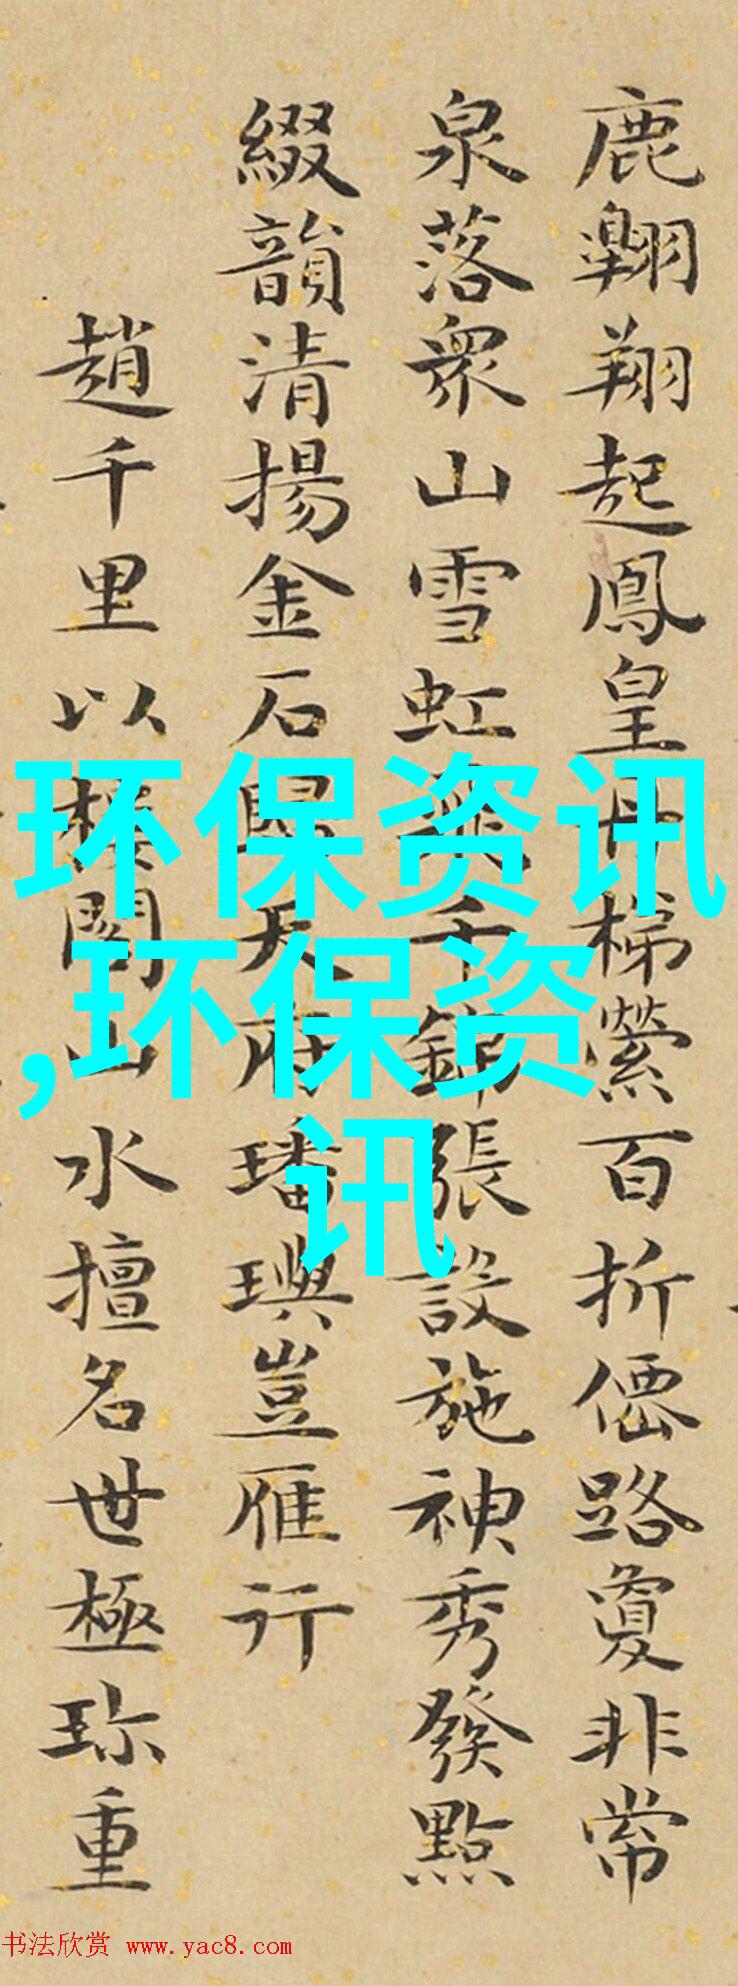 鹿翱翔起鳳皇丹梯縈百折僊路敻非常
泉落衆山雪虹飛千錦張設施神秀發點
綴韻清揚金石天府璠璵豈雁行
趙千里以樓閣山水擅名世極珎重
环保资讯
,环保资
讯
书法欣赏 www.yac8.com